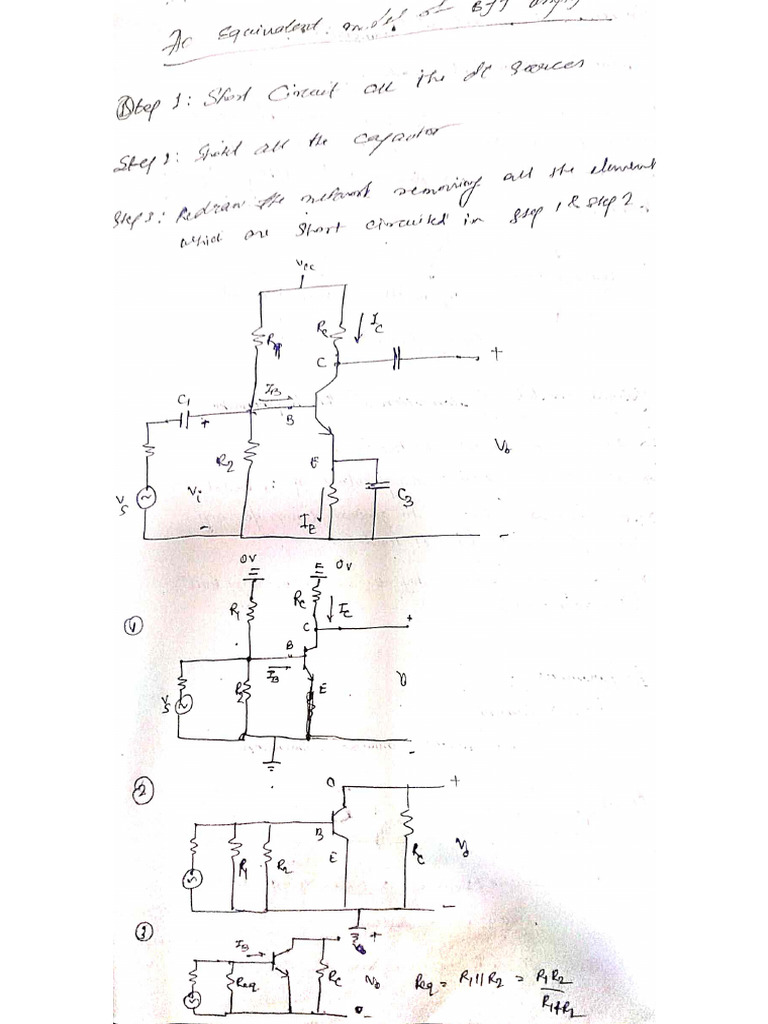 Ac Equivalent model of BJT
Step 1: Short Circuit all the dc sources
Step 2: Short all the capacitor
Step 3: Redraw the network removing all the element
which are short circuited in step 1 & step 2.
Vcc
R1
Rc
Ic
C
+
C1
IB
B
+
R2
E
Vo
Vs
Vi
C3
-
IE
-
0V
0V
R1
Rc
Ic
1
C
+
B
IB
R2
E
Vs
-
2
+
B
R1
R2
E
Rc
Vo
-
3
IB
+
Req
Rc
Vo
Req = R1||R2 = R1R2
R1+R2
-